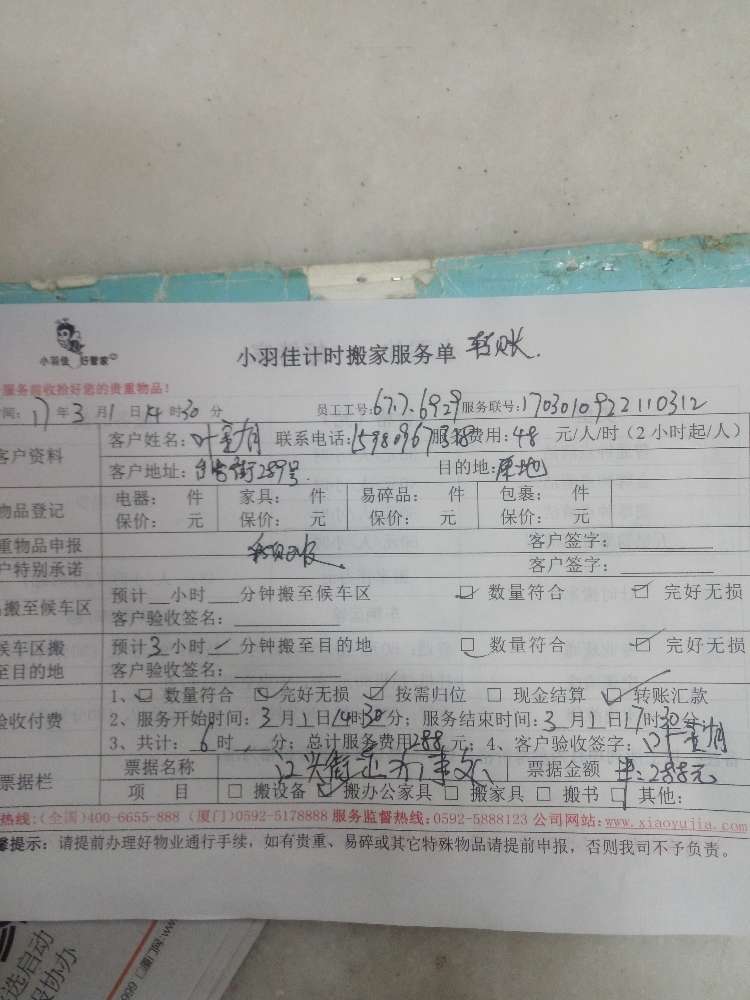 小羽佳 好管家
小羽佳计时搬家服务单 转账
服务前收拾好您的贵重物品!
间: 17年3月1日14时30分 员工工号: 677.6929 服务联号: 1703010922110312
客户资料 客户姓名: 叶 联系电话: 服务费用: 48 元/人/时(2小时起/人)
客户地址: 街289号 目的地: 原地
物品登记 电器: 件 家具: 件 易碎品: 件 包裹: 件
保价: 元 保价: 元 保价: 元 保价: 元
重物品申报 客户签字:
户特别承诺 客户签字:
搬至候车区 预计 小时 分钟搬至候车区 ☑ 数量符合 ☑ 完好无损
客户验收签名:
候车区搬至目的地 预计3小时 / 分钟搬至目的地 ☑ 数量符合 ☑ 完好无损
客户验收签名:
验收付费 1、☑ 数量符合 ☑ 完好无损 ☑ 按需归位 □ 现金结算 ☑ 转账汇款
2、服务开始时间: 3月1日14时30分; 服务结束时间: 3月1日17时30分
3、共计: 6时 分; 总计服务费用288元; 4、客户验收签字: 叶
票据栏 票据名称 街道办事处 票据金额 288元
项 目 □ 搬设备 ☑ 搬办公家具 □ 搬家具 □ 搬书 □ 其他:
热线:(全国)400-6655-888 (厦门)0592-5178888 服务监督热线:0592-5888123 公司网站:www.xiaoyujia.com
馨提示: 请提前办理好物业通行手续, 如有贵重、易碎或其它特殊物品请提前申报, 否则我司不予负责。
选启动
报协办